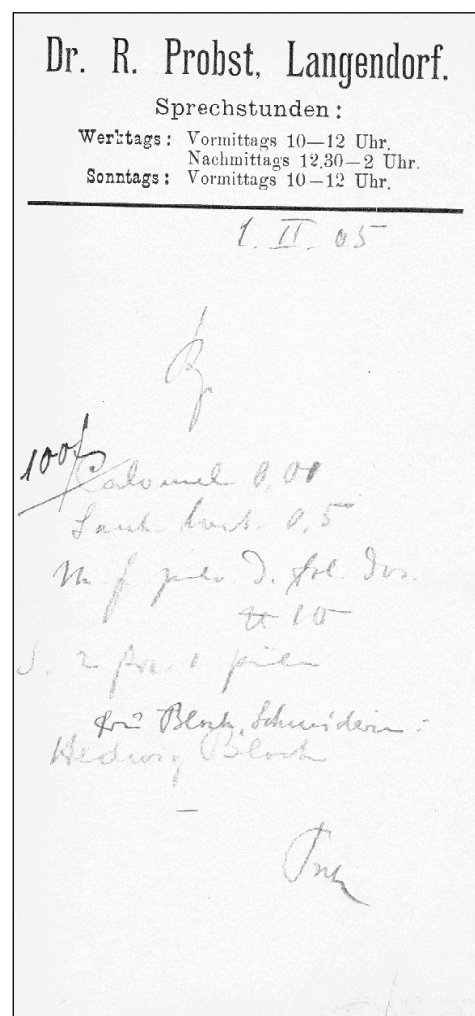 Dr. R. Probst, Langendorf.
Sprechstunden:
Werktags: Vormittags 10—12 Uhr.
Nachmittags 12.30—2 Uhr.
Sonntags: Vormittags 10—12 Uhr.
1. II. 05
Rp
Calomel 0,01
Sach. lact. 0,5
M. f. pulv. D. tal. dos.
10
S. 2
Bloch, Schneiderin
Hedwig Bloch